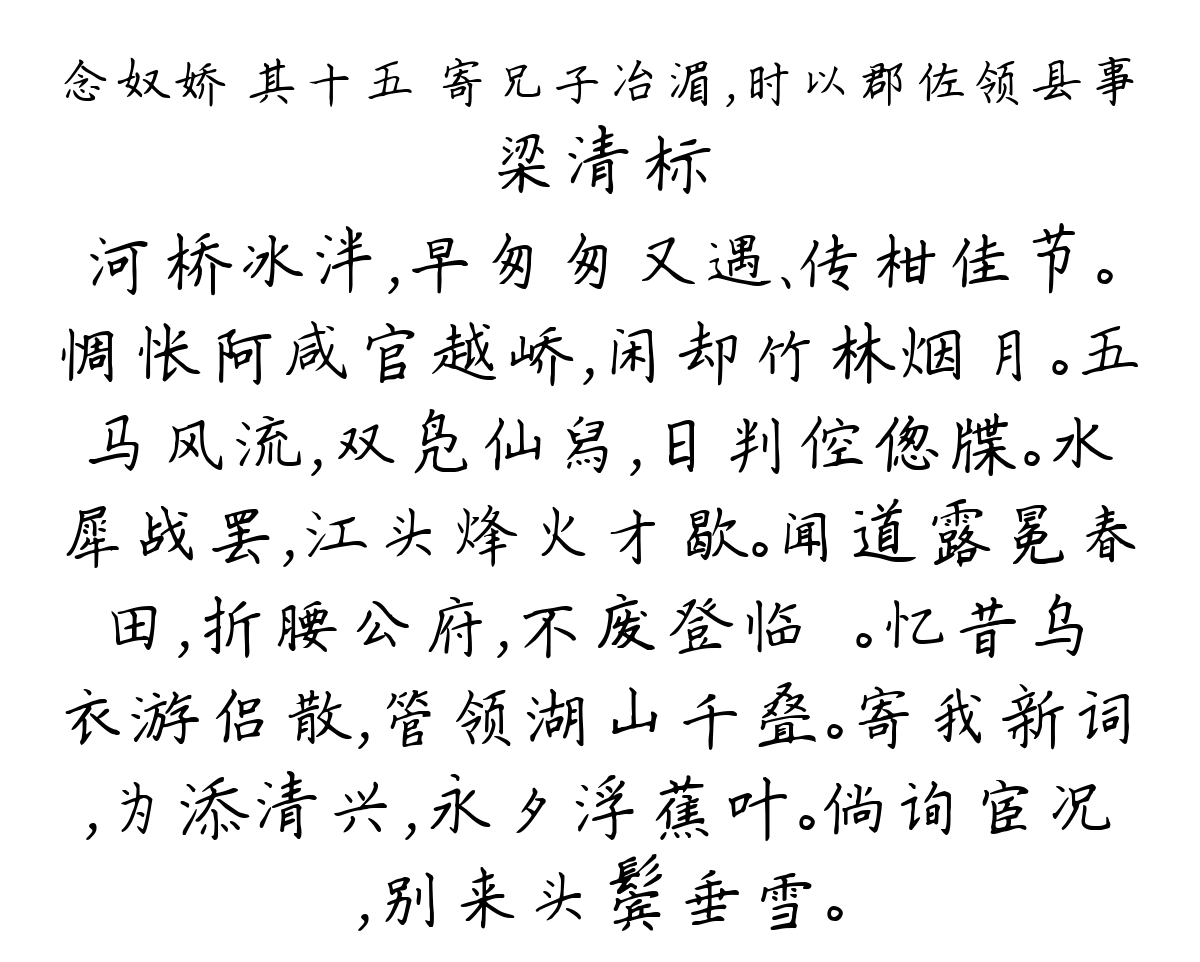 念奴娇 其十五 寄兄子冶湄,时以郡佐领县事
梁清标
河桥冰泮,早匆匆又遇、传柑佳节。
惆怅阿咸官越峤,闲却竹林烟月。五
马风流,双凫仙舄,日判倥偬牒。水
犀战罢,江头烽火才歇。闻道露冕春
田,折腰公府,不废登临 。忆昔乌
衣游侣散,管领湖山千叠。寄我新词
,为添清兴,永夕浮蕉叶。倘询宦况
,别来头鬓垂雪。